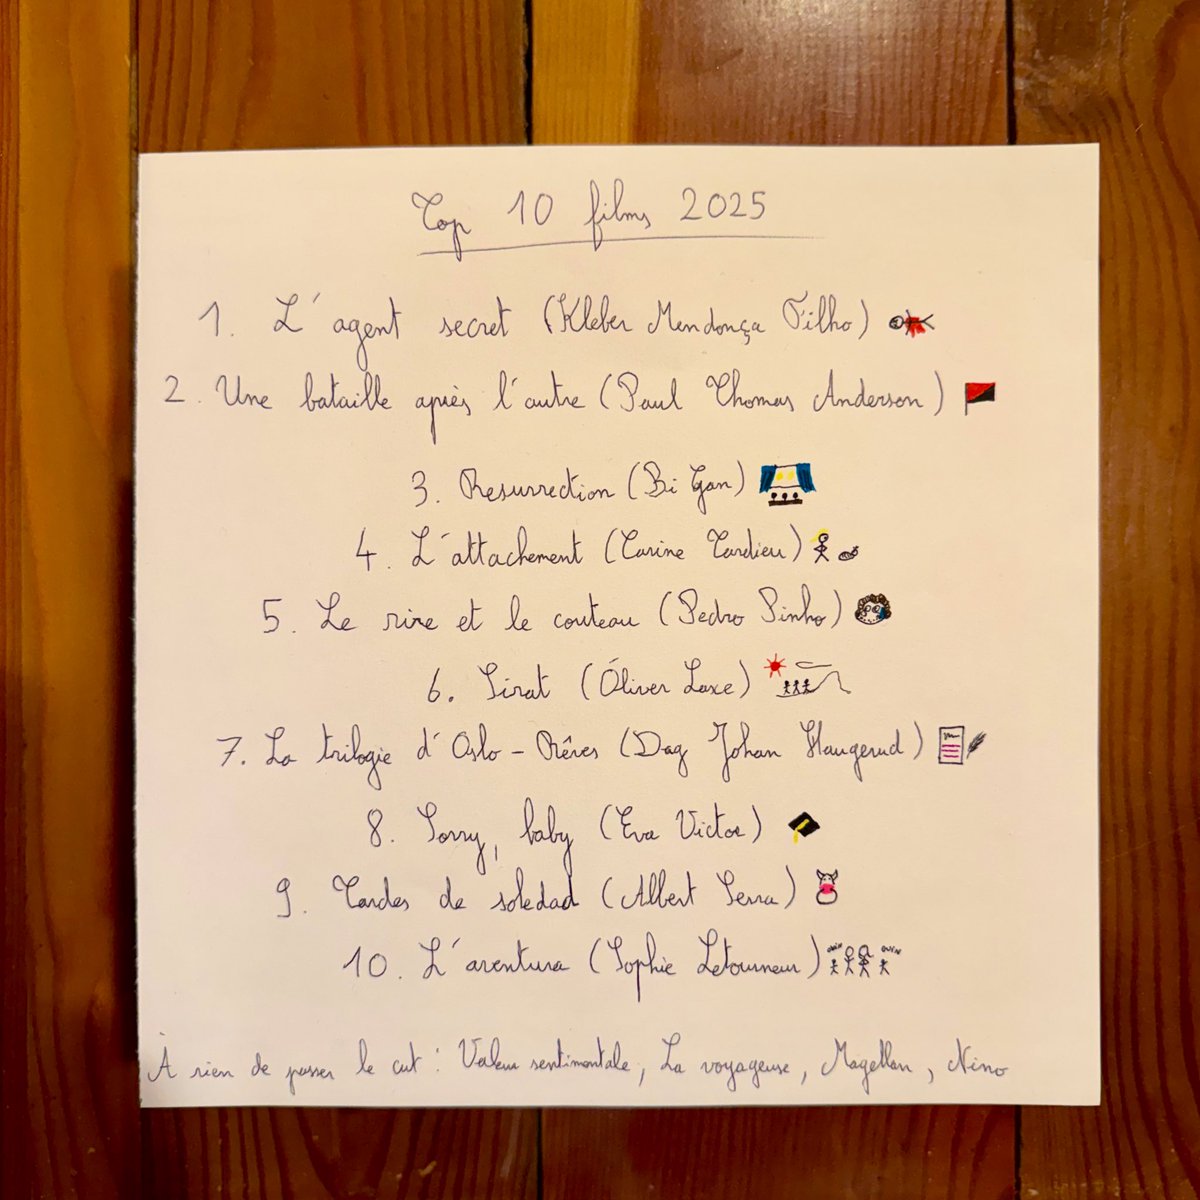 Top 10 films 2025
1. L'agent secret (Kleber Mendonça Filho)
2. Une bataille après l'autre (Paul Thomas Anderson)
3. Resurrection (Bi Gan)
4. L'attachement (Carine Tardieu)
5. Le rire et le couteau (Pedro Pinho)
6. Sirat (Óliver Laxe)
7. La trilogie d'Oslo - Rêves (Dag Johan Haugerud)
8. Sorry, baby (Eva Victor)
9. Tardes de soledad (Albert Serra)
10. L'aventura (Sophie Letourneur)
À rien de passer le cut : Valeur sentimentale, La voyageuse, Magellan, Nino